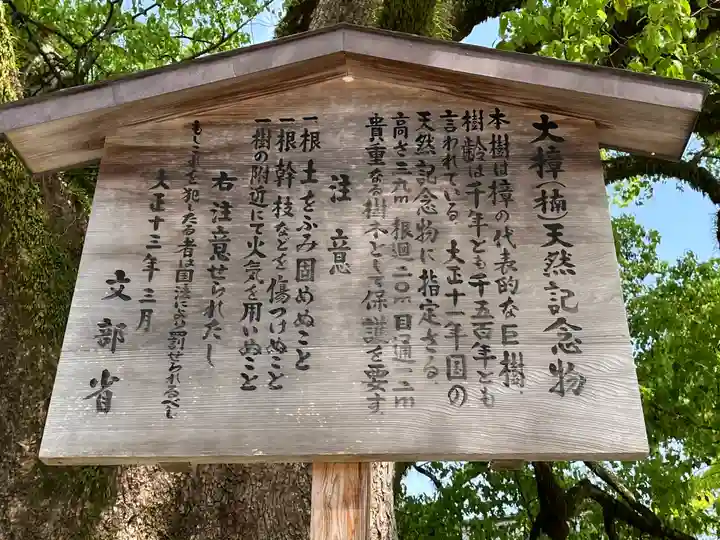 大樟(楠)天然記念物
本樹は樟の代表的な巨樹、
樹齢は千年とも千五百年とも
言われている。大正十一年国の
天然記念物に指定さる。
高さ三九m 根廻二〇m 目通一二m
貴重なる樹木として保護を要す。
注意
一根土をふみ固めぬこと
一根幹枝などを傷つけぬこと
一樹の附近にて火気を用いぬこと
右注意せられたし
もしこれを犯したる者は国法により罰せられるべし
大正十三年三月
文部省